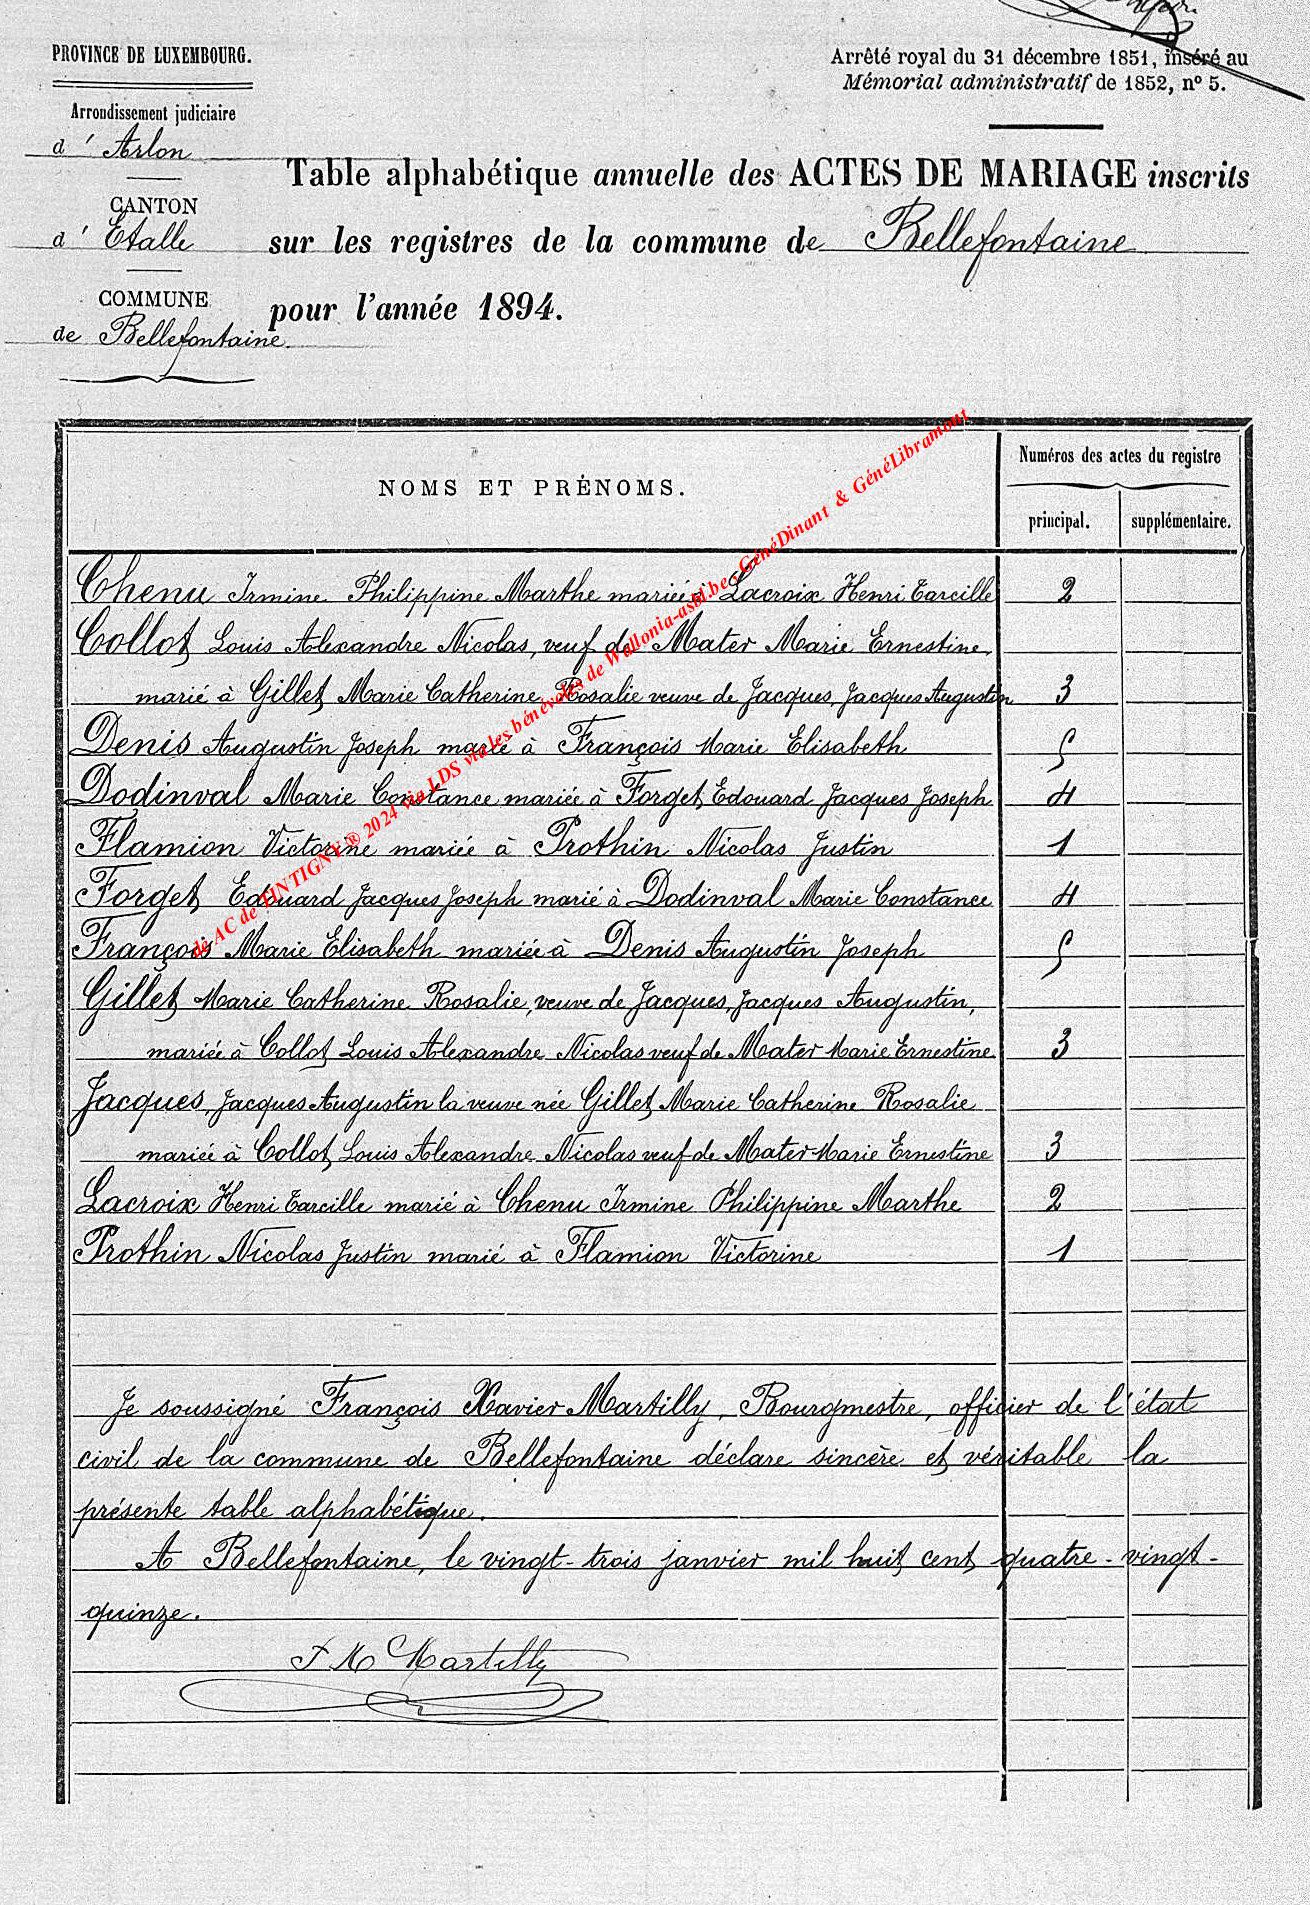 PROVINCE DE LUXEMBOURG.
Arrondissement judiciaire
d' Arlon
CANTON
d' Etalle
COMMUNE
de Bellefontaine.
Arrêté royal du 31 décembre 1851, inséré au
Mémorial administratif de 1852, n° 5.
Table alphabétique annuelle des ACTES DE MARIAGE inscrits
sur les registres de la commune de Bellefontaine
pour l'année 1894.
NOMS ET PRÉNOMS.
Numéros des actes du registre
principal. supplémentaire.
Chenu Irmine Philippine Marthe mariée à Lacroix Henri Tarcille 2
Collot Louis Alexandre Nicolas, veuf de Mater Marie Ernestine,
marié à Gillet Marie Catherine Rosalie veuve de Jacques, Jacques Augustin 3
Denis Augustin Joseph marié à François Marie Elisabeth 5
Dodinval Marie Constance mariée à Forget Edouard Jacques Joseph 4
Flamion Victorine mariée à Prothin Nicolas Justin 1
Forget Edouard Jacques Joseph marié à Dodinval Marie Constance 4
François Marie Elisabeth mariée à Denis Augustin Joseph 5
Gillet Marie Catherine Rosalie, veuve de Jacques, Jacques Augustin,
mariée à Collot Louis Alexandre Nicolas veuf de Mater Marie Ernestine 3
Jacques, Jacques Augustin la veuve née Gillet Marie Catherine Rosalie
mariée à Collot Louis Alexandre Nicolas veuf de Mater Marie Ernestine 3
Lacroix Henri Tarcille marié à Chenu Irmine Philippine Marthe 2
Prothin Nicolas Justin marié à Flamion Victorine 1
Je soussigné François Xavier Martilly, Bourgmestre, officier de l'état
civil de la commune de Bellefontaine déclare sincère et véritable la
présente table alphabétique.
A Bellefontaine, le vingt-trois janvier mil huit cent quatre-vingt-
quinze.
Martilly
de AC de TINTIGNY ® 2024 via LDS via les bénévoles de Wallonia-asbl.be, GénéDinant & GénéLibramont